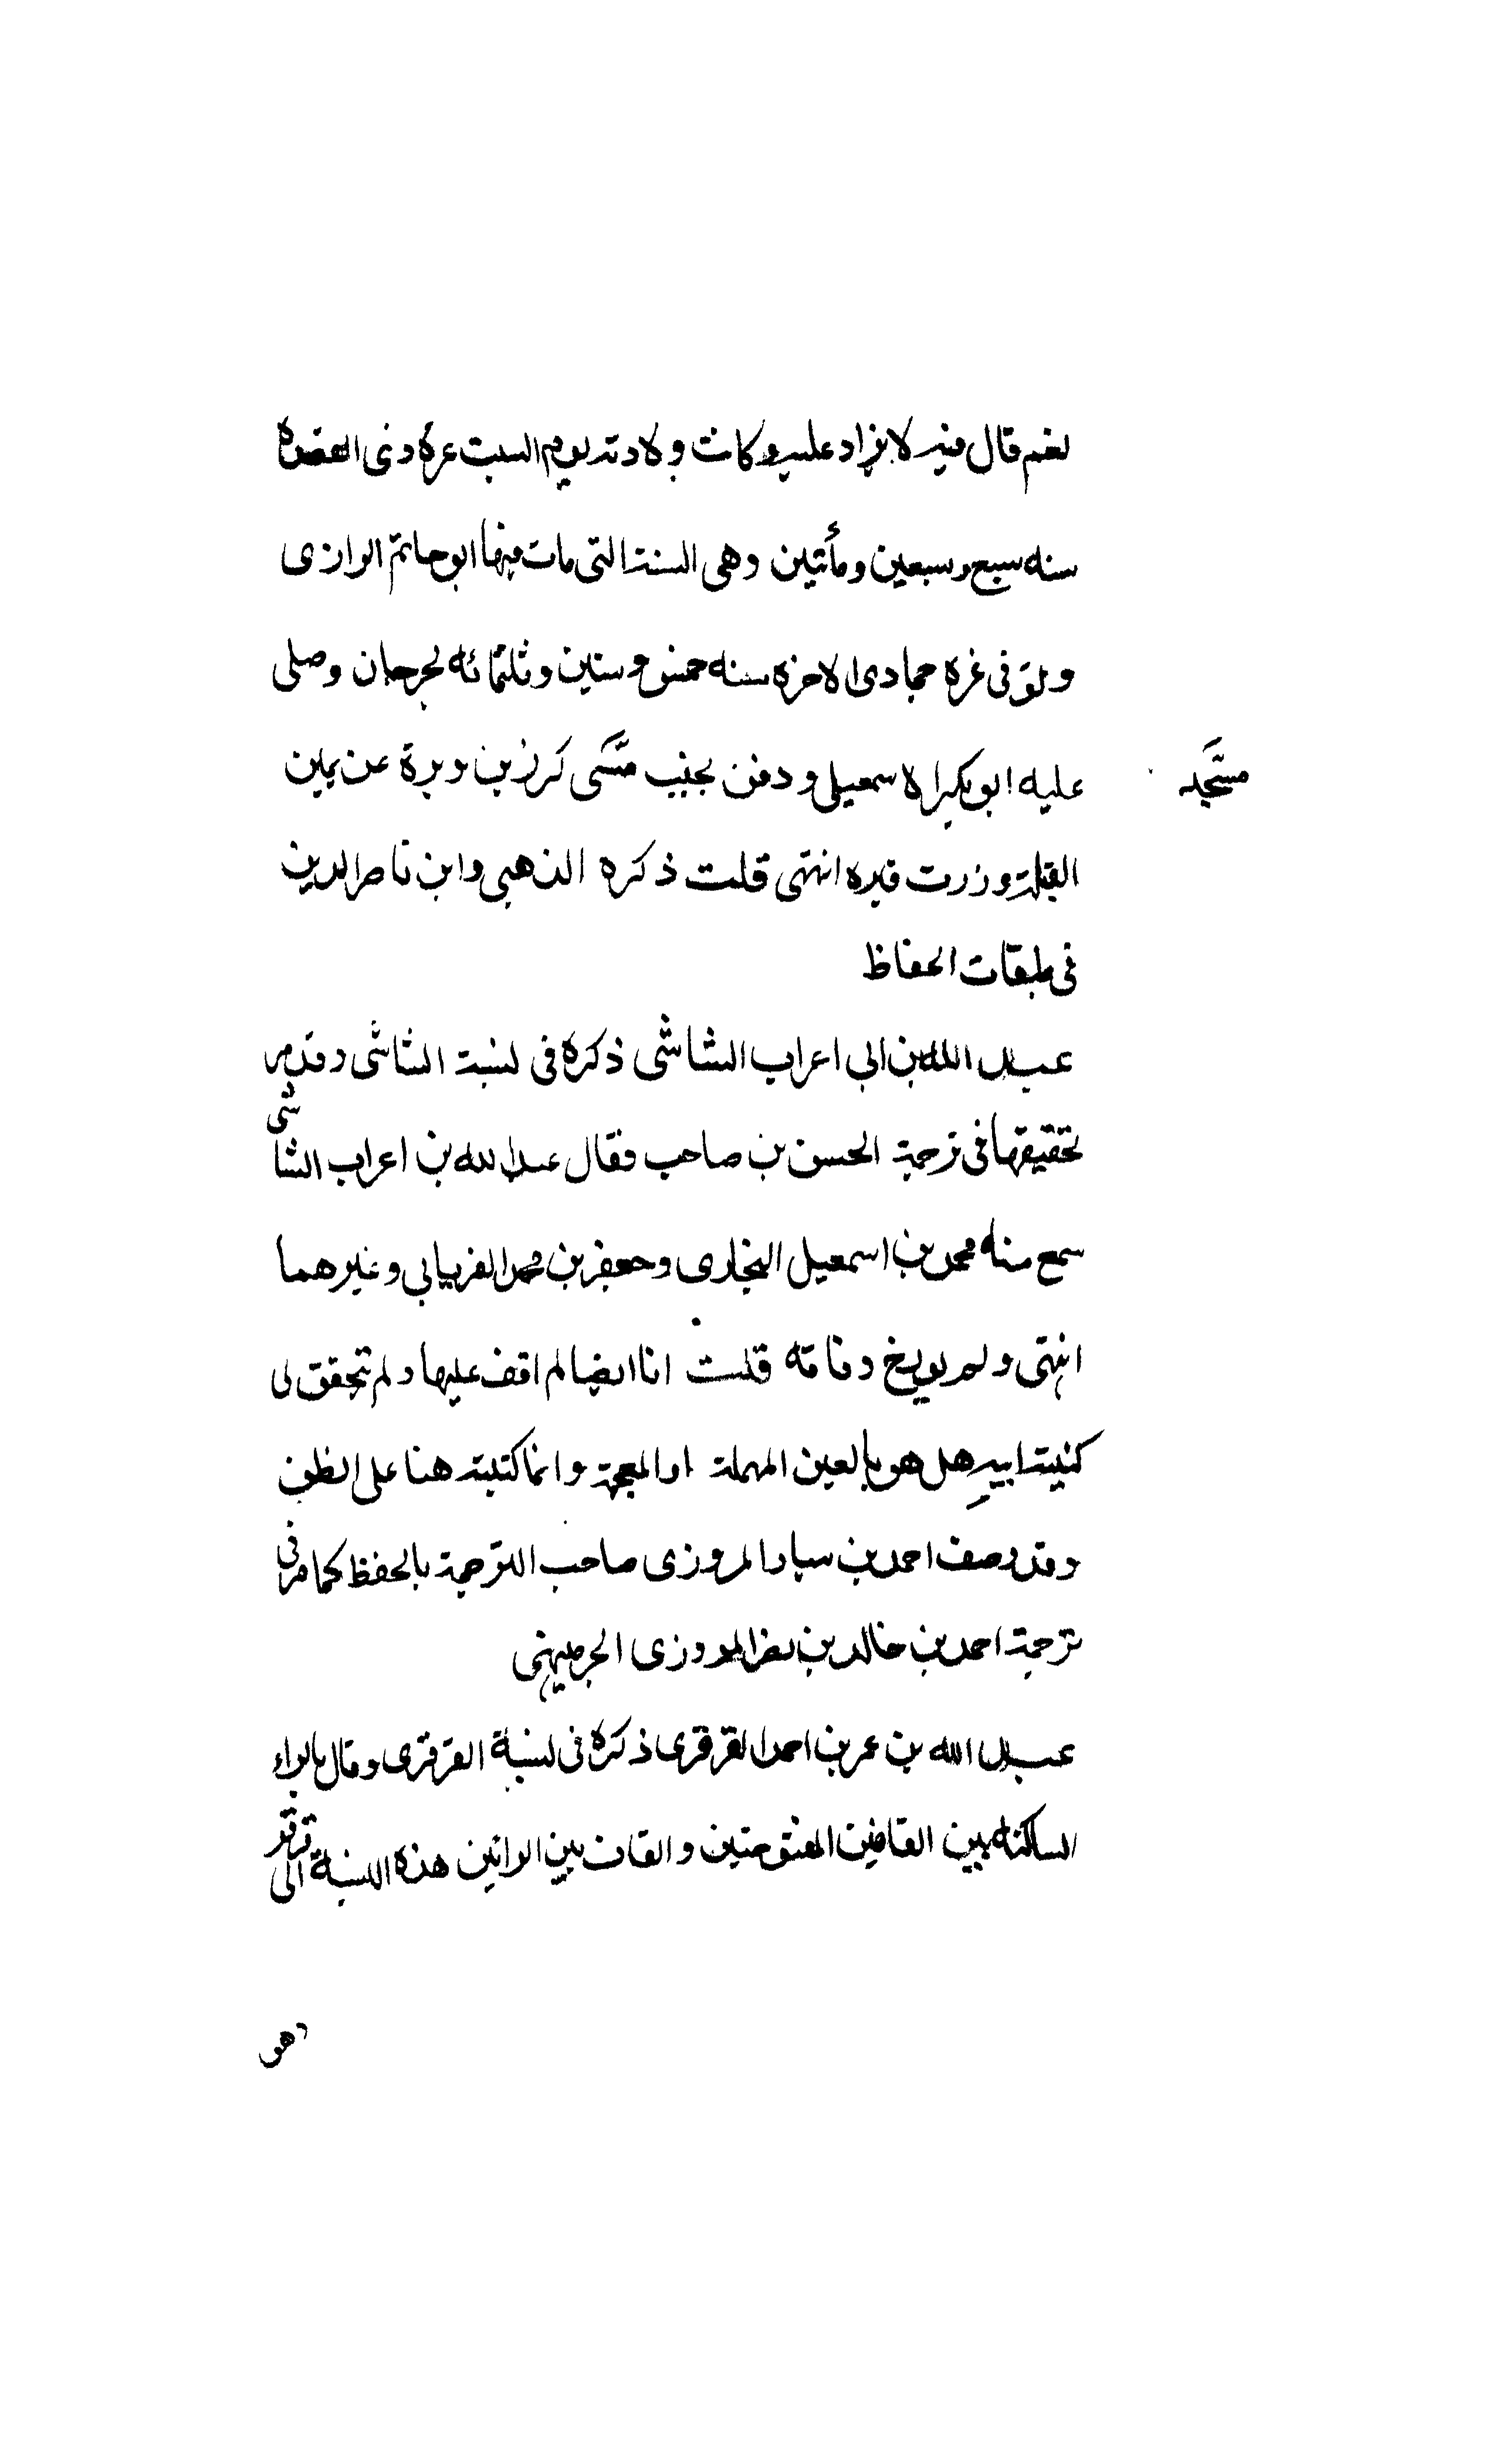 نعم قال فيه لا يزاد عليه وكانت ولادته يوم السبت غرة ذى القعدة
سنه سبع وسبعين ومأتين وهى السنة التى مات فيها ابو حاتم الرازى
وتوفى غره جمادى الاخره سنه خمس وستين وثلثمائه بجرجان وصلى
عليه ابو بكر الاسمعيلى ودفن بجنب كرز بن وبرة عن يمين
مسجد
القبلة وزرت قبره انتهى قلت ذكره الذهبى وابن ناصر الدين
فى طبقات الحفاظ
عبد الله بن ابى اعراب الشاشى ذكره فى نسبة الشاشى وقد مر
تحقيقها فى ترجمة الحسن بن صاحب فقال عبد الله بن اعراب الشاشى
سمع منه محمد بن اسمعيل البخارى وجعفر بن محمد الفريابى وغيرهما
انتهى ولم يورخ وفاته قلت انا ايضا لم اقف عليها ولم تحقق لى
كنيته ابيه هل هو بالعين المهملة او المعجمة وانما كتبته هنا على الظن
وقد وصف احمد بن سيار المروزى صاحب الترجمة بالحفظ كما مر فى
ترجمة احمد بن خالد بن نضر المروزى الجرميهنى
عبد الله بن عمر بن احمد القرقرى ذكره فى نسبة القرقرى وقال بالراء
الساكنه بين القافين المفتوحتين والقاف بين الرائين هذه النسبة الى قرقر
وهو